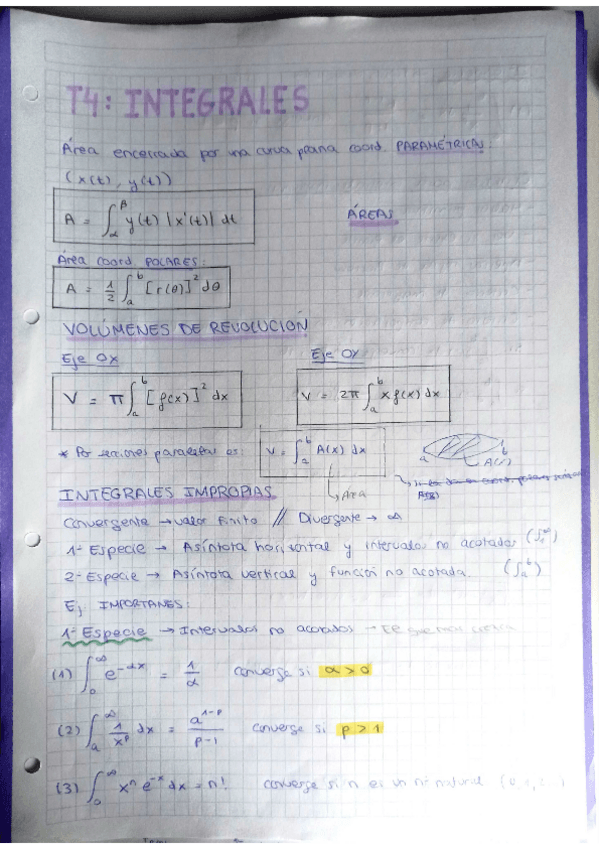 T4: INTEGRALES
Área encerrada por una curva plana coord. PARAMÉTRICAS:
(x(t), y(t))
A = ∫_α^β y(t) |x'(t)| dt
ÁREAS
Área coord. POLARES:
A = 1/2 ∫_a^b [r(θ)]² dθ
VOLÚMENES DE REVOLUCIÓN
Eje OX
Eje OY
V = π ∫_a^b [f(x)]² dx
V = 2π ∫_a^b x f(x) dx
* Por secciones paralelas es: V = ∫_a^b A(x) dx
a b A(x)
Área
INTEGRALES IMPROPIAS
Convergente → valor finito // Divergente → ∞
1ª Especie → Asíntota horizontal y intervalos no acotados (∫_a^∞)
2ª Especie → Asíntota vertical y función no acotada. (∫_a^b)
Ej IMPORTANES:
1ª Especie → Intervalos no acotados →
(1) ∫_0^∞ e^{-αx} = 1/α converge si α > 0
(2) ∫_a^∞ 1/x^p dx = a^{1-p}/p-1 converge si p > 1
(3) ∫_0^∞ x^n e^{-x} dx = n! converge si n es un nº natural